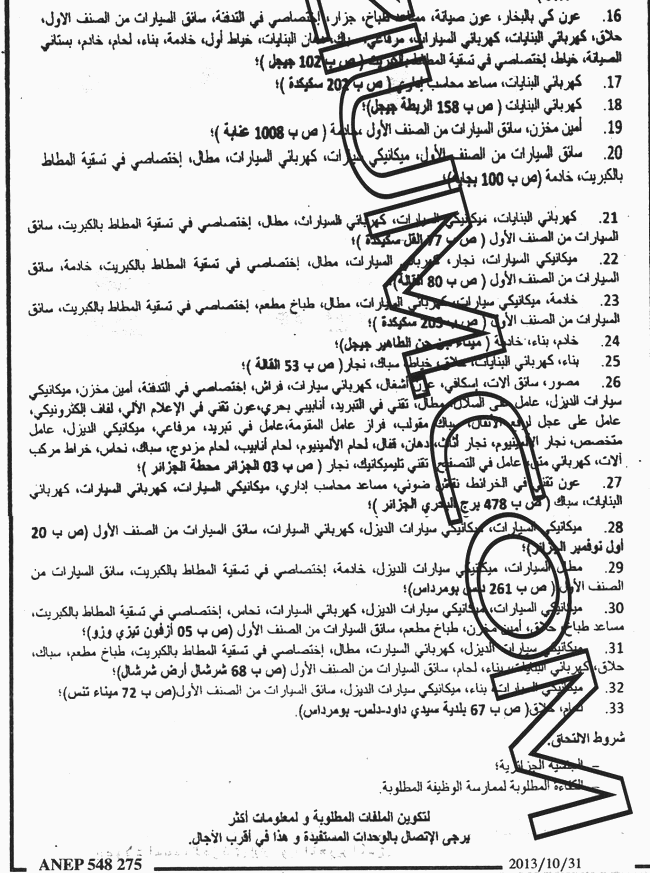 16. عون كي بالبخار، عون صيانة، مساعد طباخ، جزار، إختصاصي في التدفئة، سائق السيارات من الصنف الاول،
حلاق، كهربائي البنايات، كهربائي السيارات، مرفاعي، سباك، دهان البنايات، خياط أول، خادمة، بناء، لحام، خادم، بستاني
الصيانة، خياط، إختصاصي في تسقية المطاط بالكبريت ( ص ب 102 جيجل )؛
17. كهربائي البنايات، مساعد محاسب إداري ( ص ب 202 سكيكدة )؛
18. كهربائي البنايات ( ص ب 158 الربطة جيجل)؛
19. أمين مخزن، سائق السيارات من الصنف الأول ،خادمة ( ص ب 1008 عنابة )؛
20. سائق السيارات من الصنف الأول، ميكانيكي سيارات، كهربائي السيارات، مطال، إختصاصي في تسقية المطاط
بالكبريت، خادمة (ص ب 100 بجاية)؛
21. كهربائي البنايات، ميكانيكي السيارات، كهربائي السيارات، مطال، إختصاصي في تسقية المطاط بالكبريت، سائق
السيارات من الصنف الأول ( ص ب 77 القل سكيكدة )؛
22. ميكانيكي السيارات، نجار، كهربائي السيارات، مطال، إختصاصي في تسقية المطاط بالكبريت، خادمة، سائق
السيارات من الصنف الأول ( ص ب 80 القالة)؛
23. خادمة، ميكانيكي سيارات، كهربائي السيارات، مطال، طباخ مطعم، إختصاصي في تسقية المطاط بالكبريت، سائق
السيارات من الصنف الأول ( ص ب 205 سكيكدة )؛
24. خادم، بناء، خادمة ( ميناء جن جن الطاهير جيجل)؛
25. بناء، كهربائي البنايات، حلاق، خياط، سباك، نجار( ص ب 53 القالة )؛
26. مصور، سائق آلات، إسكافي، عون أشغال، كهربائي سيارات، فراش، إختصاصي في التدفئة، أمين مخزن، ميكانيكي
سيارات الديزل، عامل على السلال، مطال، تقني في التبريد، أنابيبي بحري،عون تقني في الإعلام الألي، لفاف إلكترونيكي،
عامل على عجل لرفع الأثقال، سباك مقولب، فراز عامل المقومة،عامل في تبريد، مرفاعي، ميكانيكي الديزل، عامل
متخصص، نجار الألمنيوم، نجار أثاث، دهان، قفال، لحام الألمنيوم، لحام أنابيب، لحام مزدوج، سباك، نحاس، خراط مركب
آلات، كهربائي متن، عامل في التصفيح، تقني تليميكانيك، نجار ( ص ب 03 الجزائر محطة الجزائر )؛
27. عون تقني في الخرائط، نقاش ضوئي، مساعد محاسب إداري، ميكانيكي السيارات، كهربائي السيارات، كهربائي
البنايات، سباك ( ص ب 478 برج البحري الجزائر )؛
28. ميكانيكي السيارات، ميكانيكي سيارات الديزل، كهربائي السيارات، سائق السيارات من الصنف الأول (ص ب 20
أول نوفمبر الجزائر)؛
29. مطال السيارات، ميكانيكي سيارات الديزل، خادمة، إختصاصي في تسقية المطاط بالكبريت، سائق السيارات من
الصنف الأول( ص ب 261 دلس بومرداس)؛
30. ميكانيكي السيارات، ميكانيكي سيارات الديزل، كهربائي السيارات، نحاس، إختصاصي في تسقية المطاط بالكبريت،
مساعد طباخ، حلاق، أمين مخزن، طباخ مطعم، سائق السيارات من الصنف الأول (ص ب 05 أزفون تيزي وزو)؛
31. ميكانيكي سيارات الديزل، كهربائي السيارت، مطال، إختصاصي في تسقية المطاط بالكبريت، طباخ مطعم، سباك،
حلاق، كهربائي البنايات، بناء، لحام، سائق السيارات من الصنف الأول (ص ب 68 شرشال أرض شرشال)؛
32. ميكانيكي السيارات، بناء، ميكانيكي سيارات الديزل، سائق السيارات من الصنف الأول(ص ب 72 ميناء تنس)؛
33. لحام، حلاق( ص ب 67 بلدية سيدي داود-دلس- بومرداس).
شروط الالتحاق.
– الجنسية الجزائرية؛
– الكفاءة المطلوبة لممارسة الوظيفة المطلوبة.
لتكوين الملفات المطلوبة و لمعلومات أكثر
يرجى الإتصال بالوحدات المستفيدة و هذا في أقرب الأجال.
ANEP 548 275
2013/10/31